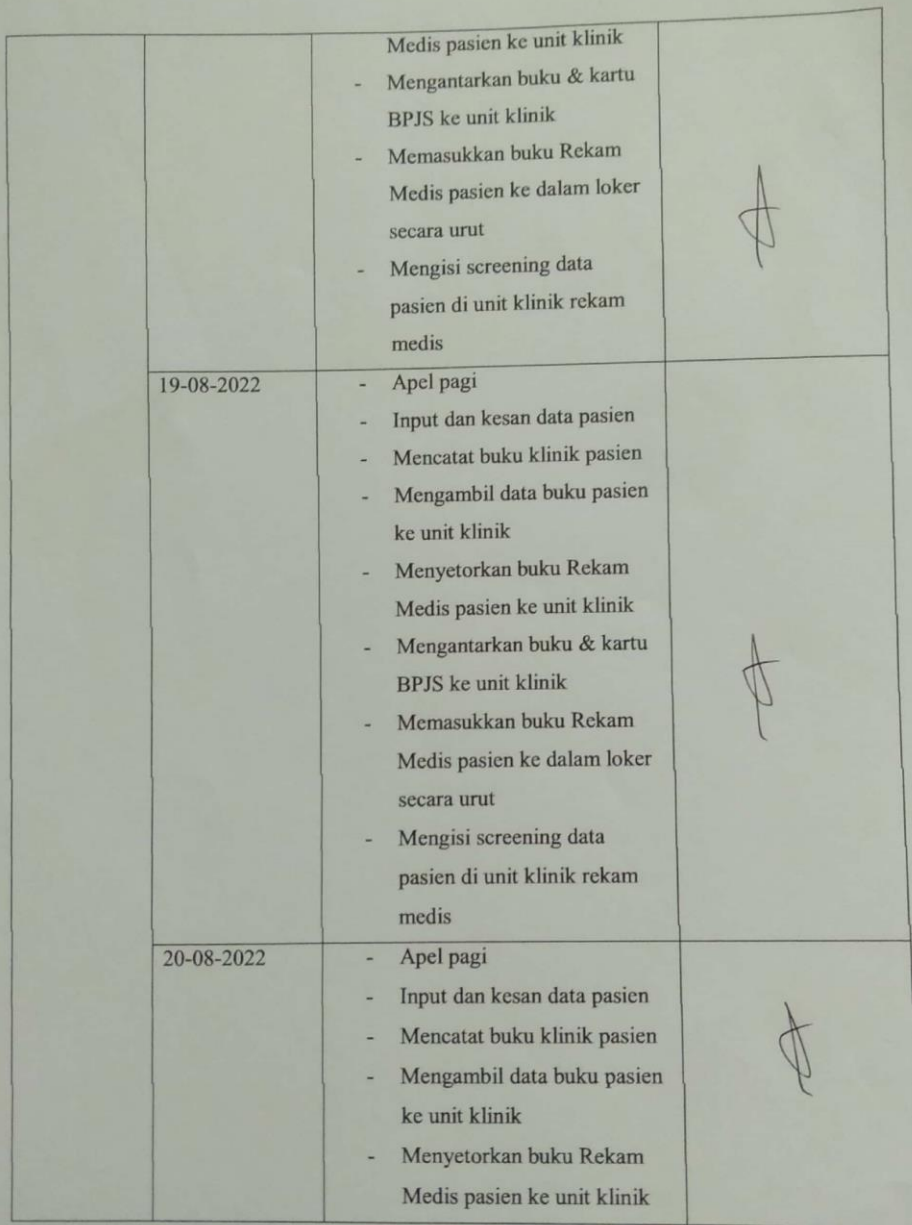 Medis pasien ke unit klinik
- Mengantarkan buku & kartu
BPJS ke unit klinik
- Memasukkan buku Rekam
Medis pasien ke dalam loker
secara urut
- Mengisi screening data
pasien di unit klinik rekam
medis
19-08-2022
- Apel pagi
- Input dan kesan data pasien
- Mencatat buku klinik pasien
- Mengambil data buku pasien
ke unit klinik
- Menyetorkan buku Rekam
Medis pasien ke unit klinik
- Mengantarkan buku & kartu
BPJS ke unit klinik
- Memasukkan buku Rekam
Medis pasien ke dalam loker
secara urut
- Mengisi screening data
pasien di unit klinik rekam
medis
20-08-2022
- Apel pagi
- Input dan kesan data pasien
- Mencatat buku klinik pasien
- Mengambil data buku pasien
ke unit klinik
- Menyetorkan buku Rekam
Medis pasien ke unit klinik